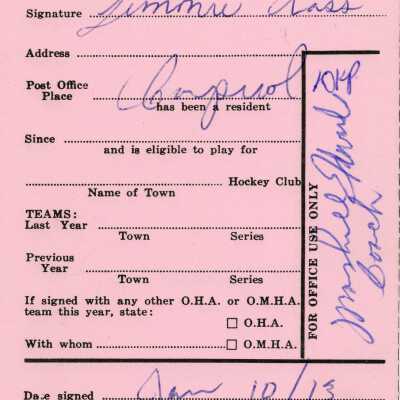 Signature
Address
Post Office
Place
has been a resident
Since
and is eligible to play for
Hockey Club
Name of Town
TEAMS:
Last Year
Town Series
Previous
Year
Town Series
If signed with any other O.H.A. or O.M.H.A.
team this year, state:
☐ O.H.A.
With whom ☐ O.M.H.A.
FOR OFFICE USE ONLY
Coach
Date signed Jan 10/73